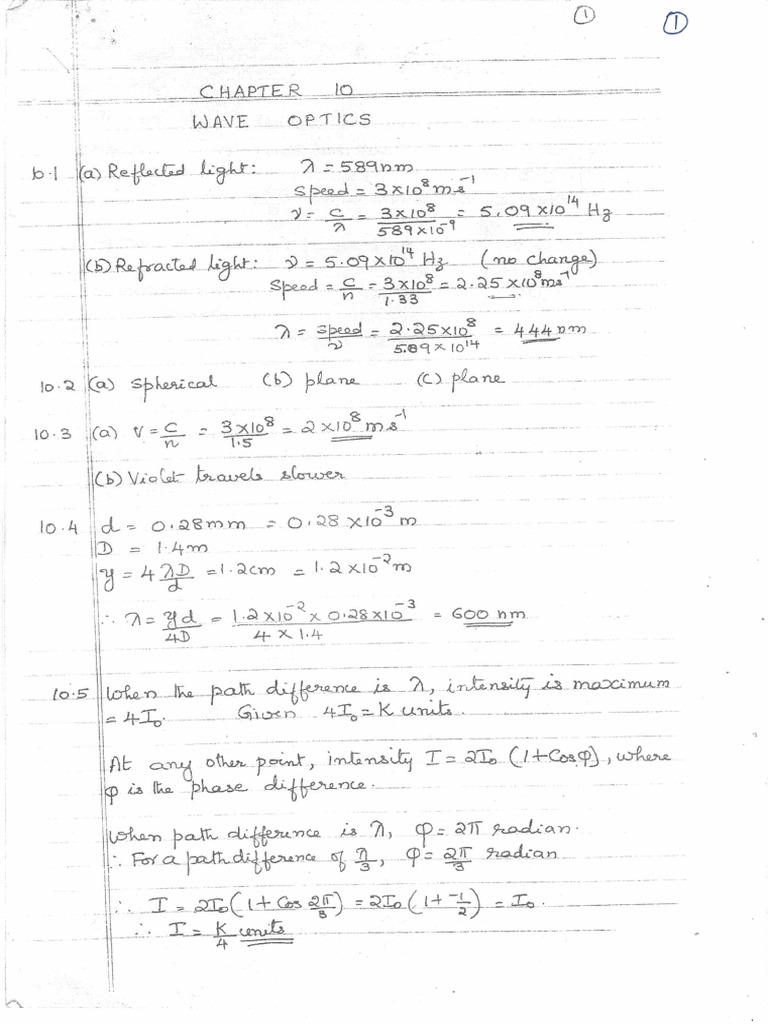 ① ①
CHAPTER 10
WAVE OPTICS
10.1 (a) Reflected light: λ = 589nm
speed = 3×10⁸ms⁻¹
ν = c/λ = 3×10⁸/589×10⁻⁹ = 5.09×10¹⁴ Hz
(b) Refracted light: ν = 5.09×10¹⁴ Hz (no change)
Speed = c/n = 3×10⁸/1.33 = 2.25×10⁸ms⁻¹
λ = speed/ν = 2.25×10⁸/5.09×10¹⁴ = 444nm
10.2 (a) Spherical (b) plane (c) plane
10.3 (a) V = c/n = 3×10⁸/1.5 = 2×10⁸ms⁻¹
(b) Violet travels slower
10.4 d = 0.28mm = 0.28×10⁻³m
D = 1.4m
y = 4λD/d = 1.2cm = 1.2×10⁻²m
∴ λ = yd/4D = 1.2×10⁻²×0.28×10⁻³/4×1.4 = 600 nm
10.5 When the path difference is λ, intensity is maximum
= 4I₀. Given 4I₀ = K units.
At any other point, intensity I = 2I₀ (1+Cosφ), where
φ is the phase difference.
When path difference is λ, φ = 2π radian.
∴ For a path difference of λ/3, φ = 2π/3 radian
∴ I = 2I₀(1+Cos 2π/3) = 2I₀(1+ -1/2) = I₀.
∴ I = K/4 units